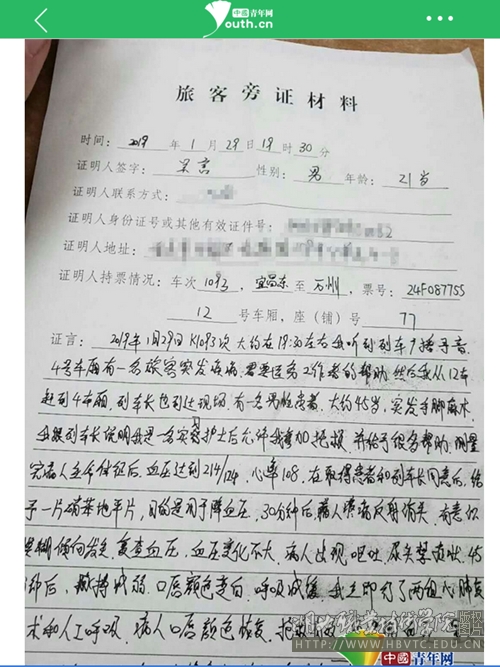 中國青年网
Youth.cn
旅客旁证材料
时间：2019年1月29日19时30分
证明人签字：梁亮 性别：男 年龄：21岁
证明人联系方式：
证明人身份证号或其他有效证件号：
证明人地址：
证明人持票情况：车次1093，宜昌东至万州，票号：24F087755
12号车厢，座（铺）号77
证言：2019年1月29日K1093次 大约在19:30左右 我听到列车广播寻音
4号车厢有一名旅客突发疾病，需要医务工作者的帮助，然后我从12车
赶到4车厢，列车长也到达现场，有一名男性患者，大约45岁，突发手脚麻木，
我跟列车长说明我是一名实习护士后允许我参加抢救，并给予很多帮助，测量
完病人生命体征后，血压达到214/124，心率108，在取得患者和列车长同意后，给
予一片硝苯地平片，目的是用于降血压，30分钟后病人瞳孔反射消失，有意识
模糊倾向发生，复查血压，血压变化不大，病人出现呕吐，尿失禁症状，45
分钟后，脉搏减弱，口唇颜色变白，呼吸减缓，我立即行了两组心肺复
术和人工呼吸，病人口唇颜色恢复，
中國青年网
WWW.HBVTC.EDU.CN
版权图片